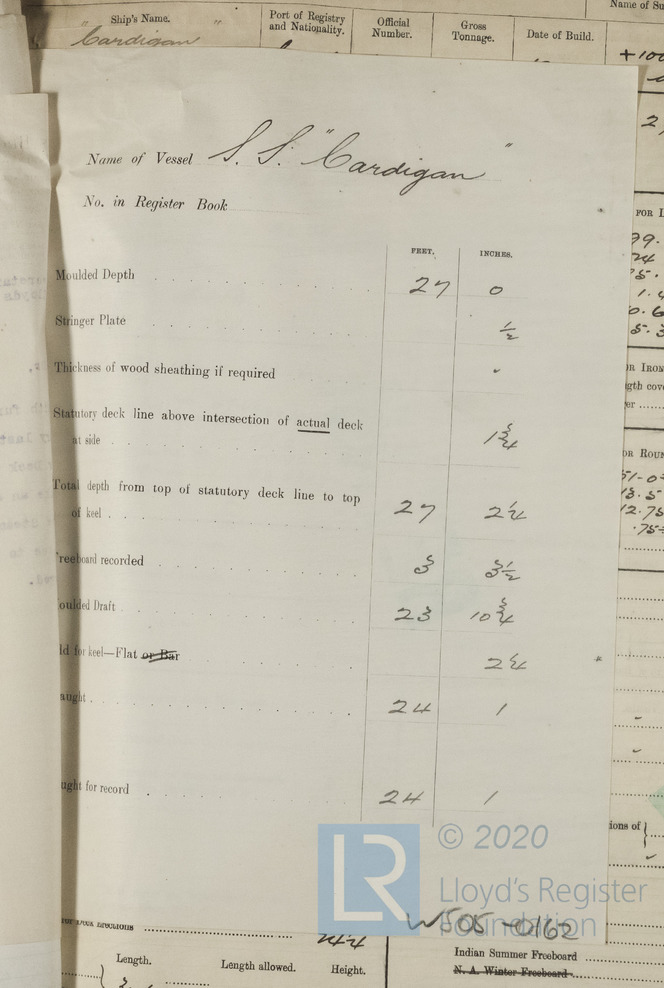 Ship's Name.
Port of Registry and Nationality.
Official Number.
Gross Tonnage.
Date of Build.
Name of Su
" Cardigan "
+100
2
Name of Vessel S.S. "Cardigan"
No. in Register Book
FEET. INCHES.
Moulded Depth 27 0
Stringer Plate 1/2
Thickness of wood sheathing if required "
Statutory deck line above intersection of actual deck
at side 1 3/4
Total depth from top of statutory deck line to top
of keel 27 2 1/4
reeboard recorded 3 3 1/2
oulded Draft 23 10 3/4
ld for keel—Flat or Bar 2 1/4
aught 24 1
ught for record 24 1
FOR I
OR IRON
gth cov
er
OR ROUN
12.75
.75
ions of }
© 2020
LR
Lloyd's Register
Foundation
W505-0162
Length.
Length allowed.
Height.
Indian Summer Freeboard
N. A. Winter Freeboard